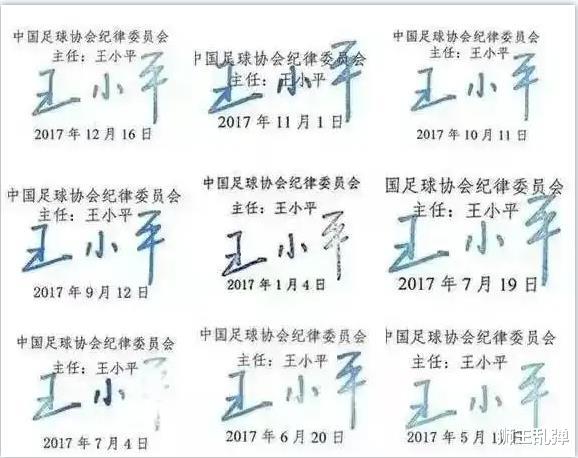 中国足球协会纪律委员会
主任：王小平
王小平
2017年12月16日
中国足球协会纪律委员会
主任：王小平
王小平
2017年11月1日
中国足球协会纪律委员会
主任：王小平
王小平
2017年10月11日
中国足球协会纪律委员会
主任：王小平
王小平
2017年9月12日
中国足球协会纪律委员会
主任：王小平
王小平
2017年1月4日
国足球协会纪律委员会
主任：王小平
王小平
2017年7月19日
中国足球协会纪律委员会
主任：王小平
王小平
2017年7月4日
中国足球协会纪律委员会
主任：王小平
王小平
2017年6月20日
中国足球协会纪律委员会
主任：王小平
王小平
2017年5月1日
师王乱弹